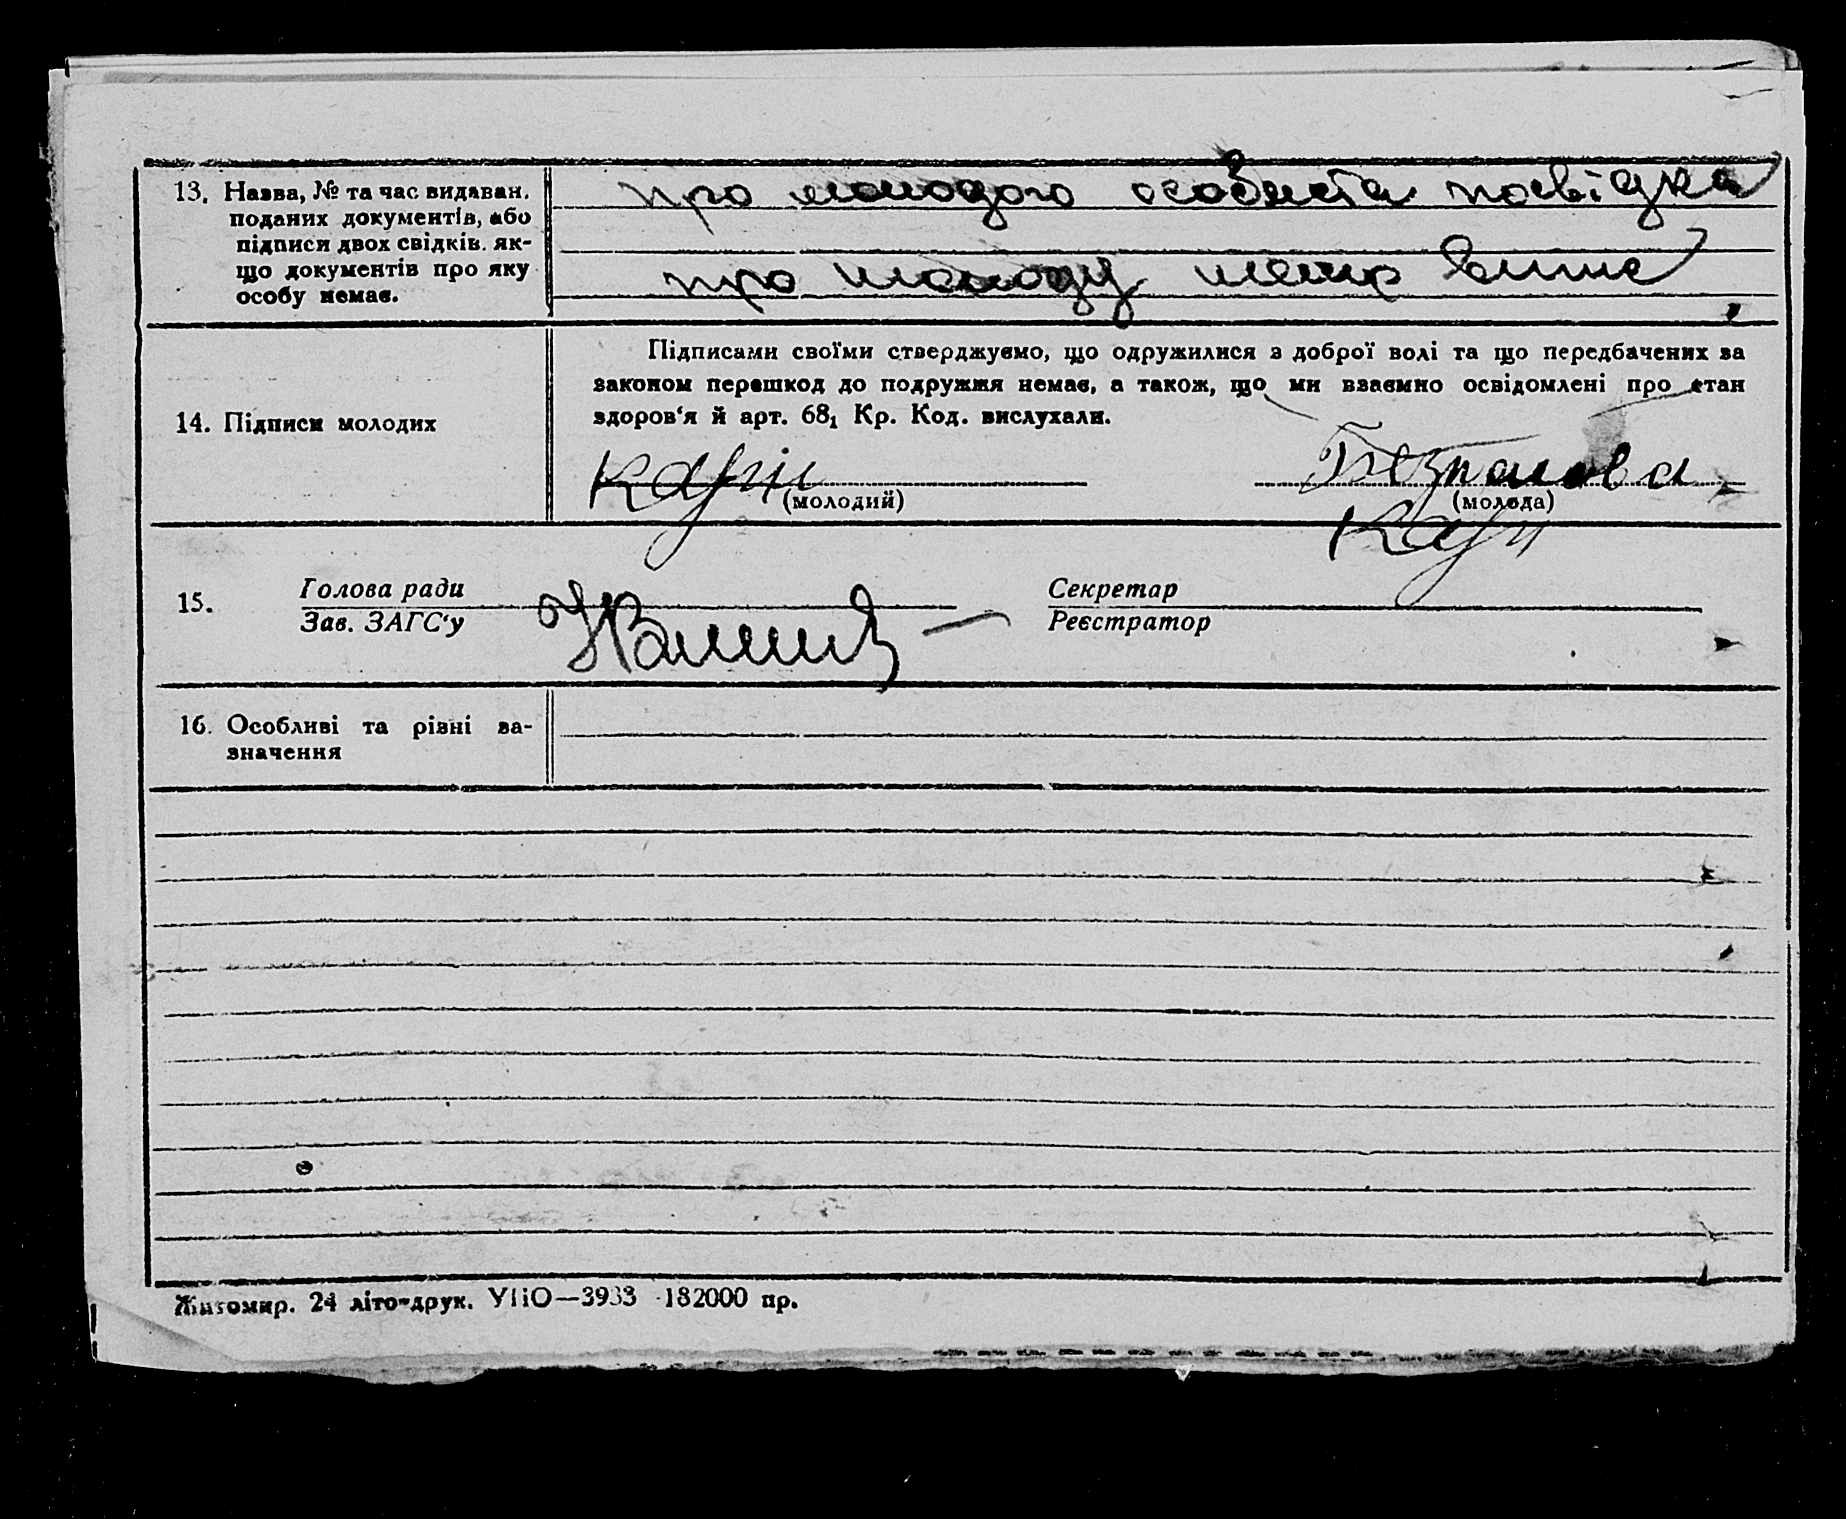 13. Назва, № та час видаван.
поданих документів, або
підписи двох свідків. як-
що документів про яку
особу немає.
про молодого особиста посвідка
про молоду
14. Підписи молодих
Підписами своїми стверджуємо, що одружилися з доброї волі та що передбачених за
законом перешкод до подружжя немає, а також, що ми взаємно освідомлені про стан
здоров‘я й арт. 68₁ Кр. Код. вислухали.
(молодий)
(молода)
15.
Голова ради
Зав. ЗАГС‘у
Секретар
Реєстратор
16. Особливі та різні за-
значення
Житомир. 24 літо-друк. УПО—3933 182000 пр.